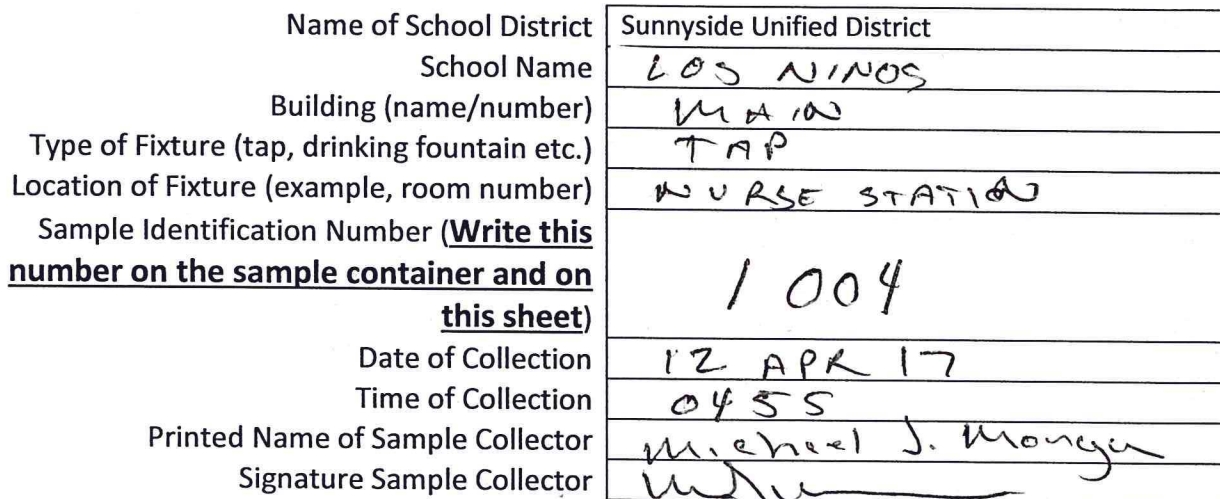 Name of School District Sunnyside Unified District
School Name LOS NINOS
Building (name/number) MAIN
Type of Fixture (tap, drinking fountain etc.) TAP
Location of Fixture (example, room number) NURSE STATION
Sample Identification Number (Write this
number on the sample container and on
this sheet) 1004
Date of Collection 12 APR 17
Time of Collection 0455
Printed Name of Sample Collector Michael J.
Signature Sample Collector